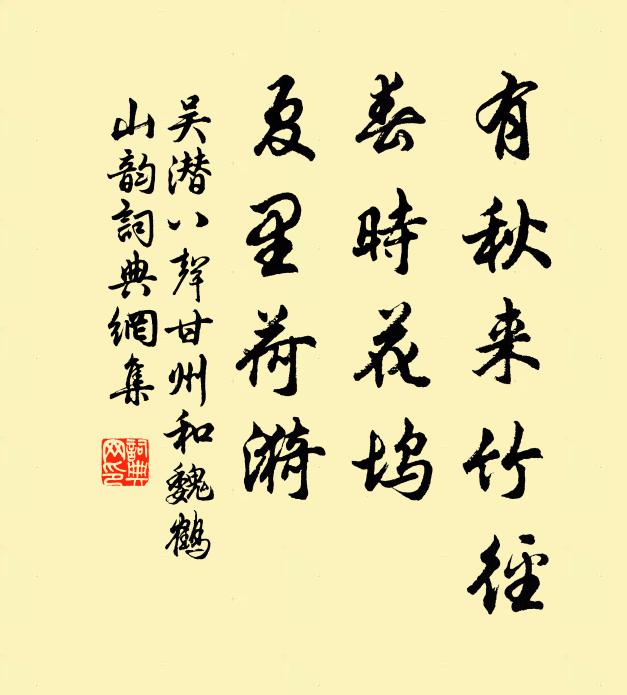 有秋来竹徑
春時花坞
夏里荷漪
吴潜八聲甘州和魏鶴
山韵詞典網集
詞典
网印